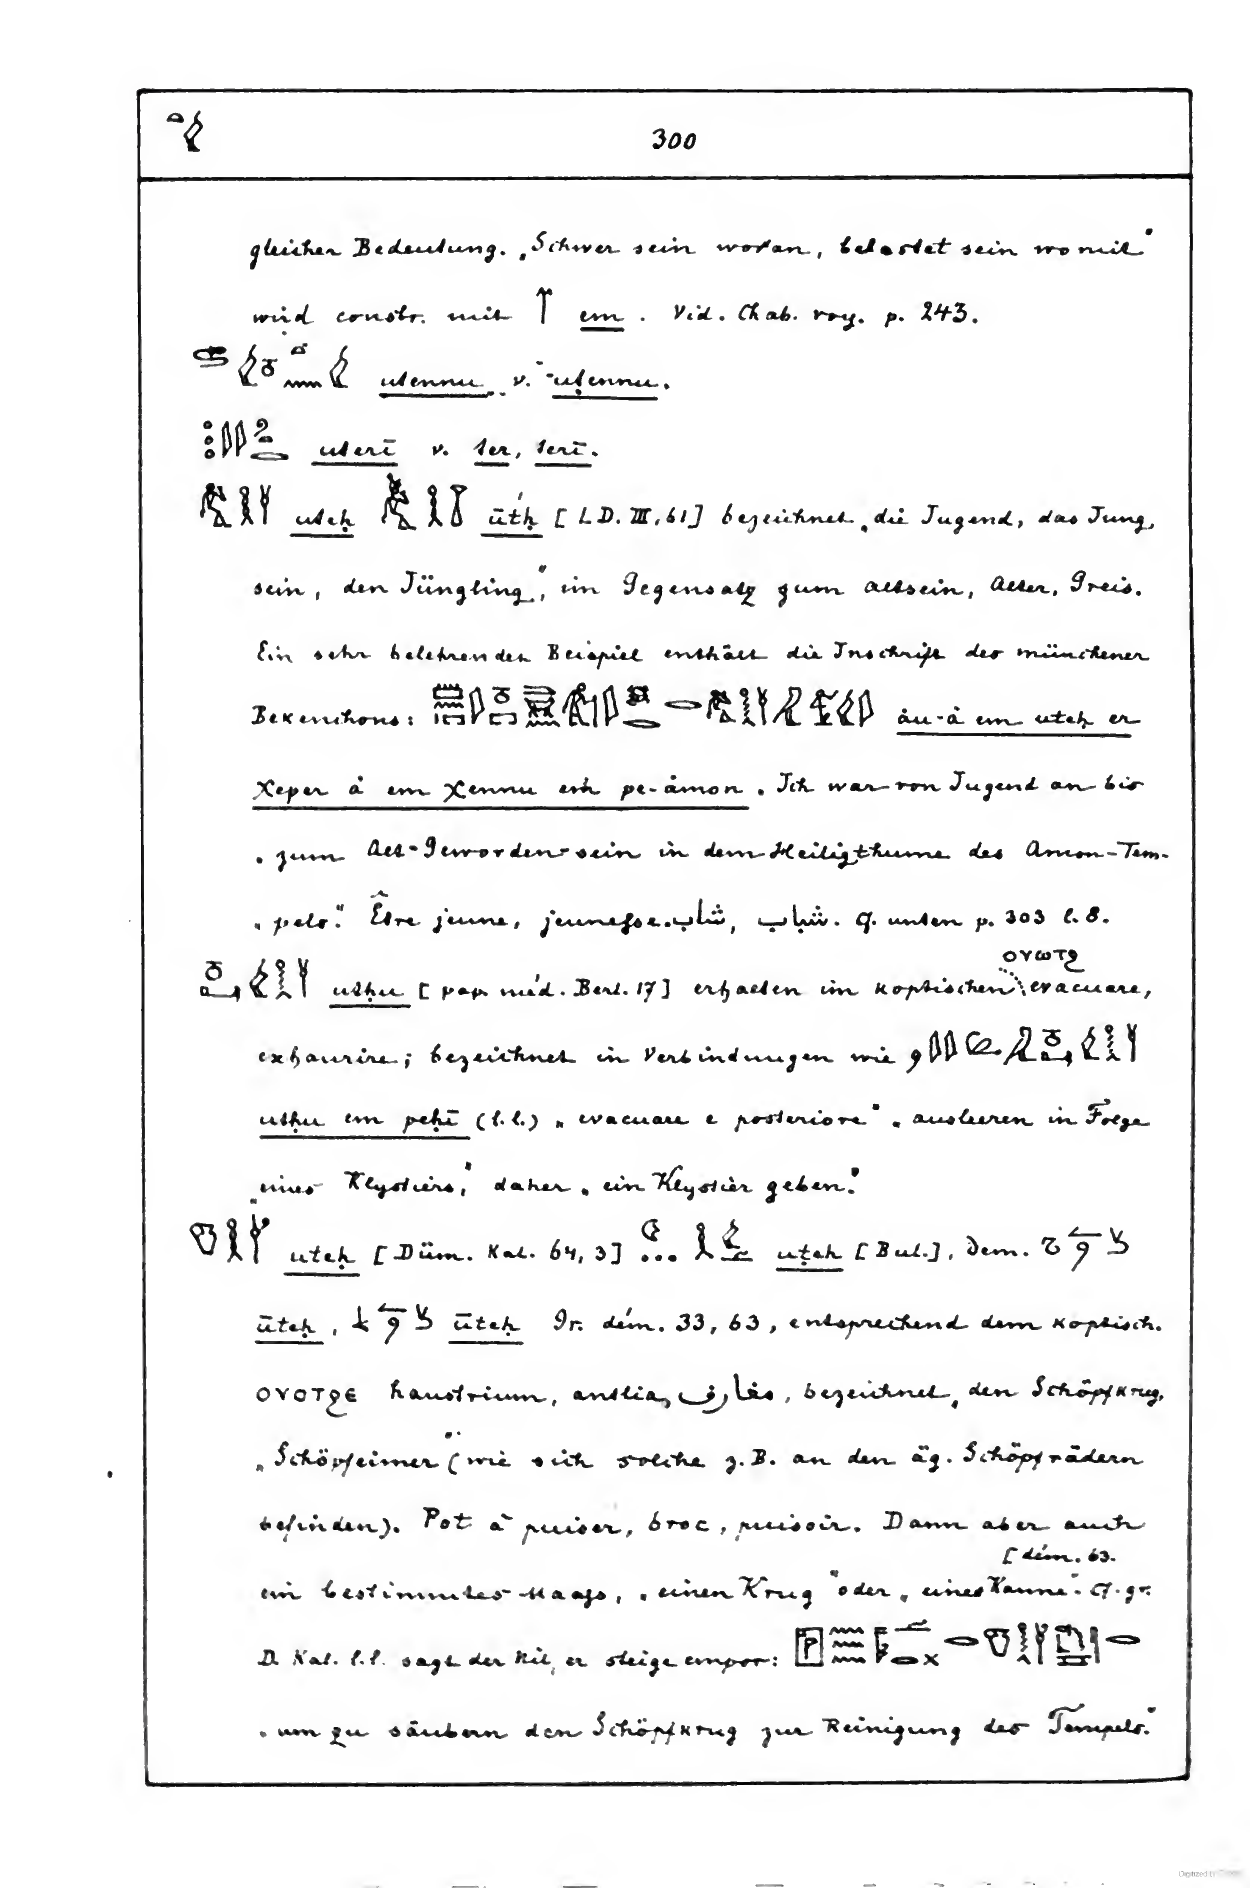 300
gleicher Bedeutung. „Schwer sein woran, belastet sein womit"
wird constr. mit em. Vid. Chab. voy. p. 243.
utennu v. uṭennu.
uterī v. ter, terī.
uteḥ ūtḥ [LD. III, 61] bezeichnet „die Jugend, das Jung,
sein, den Jüngling", im Gegensatz zum altsein, Alter, Greis.
Ein sehr belehrendes Beispiel enthält die Inschrift des münchener
Bekenchons: åu-å em uteḥ er
χeper å em χennu em pe-åmon. Ich war von Jugend an bis
„zum Alt-Geworden-sein in dem Heiligthume des Amon-Tem-
„pels". Être jeune, jeunesse. شاب, شباب. Cf. unten p. 303 l. 8.
utḥu [pap. méd. Berl. 17] erhalten im koptischen ⲟⲩⲱⲧϩ evacuare,
exhaurire; bezeichnet in Verbindungen wie
utḥu em peḥī (l.l.) „evacuare e posteriore", „ausleeren in Folge
„eines Klystiers," daher „ein Klystier geben".
uteḥ [Düm. Kal. 64, 3] uṭeh [Bul.], dem.
ūteḥ, ūteḥ Gr. dém. 33, 63, entsprechend dem koptisch.
ⲟⲩⲟⲧϩⲉ haustrium, antlia, مغارف, bezeichnet „den Schöpfkrug,
„Schöpfeimer" (wie sich solche z. B. an den äg. Schöpfrädern
befinden). Pot à puiser, broc, puisoir. Dann aber auch
[dém. 63.
ein bestimmtes Maass, „einen Krug" oder „eine Kanne". Cf. gr.
D. Kal. l.l. sagt der Nil, er steige empor:
„um zu säubern den Schöpfkrug zur Reinigung des Tempels."